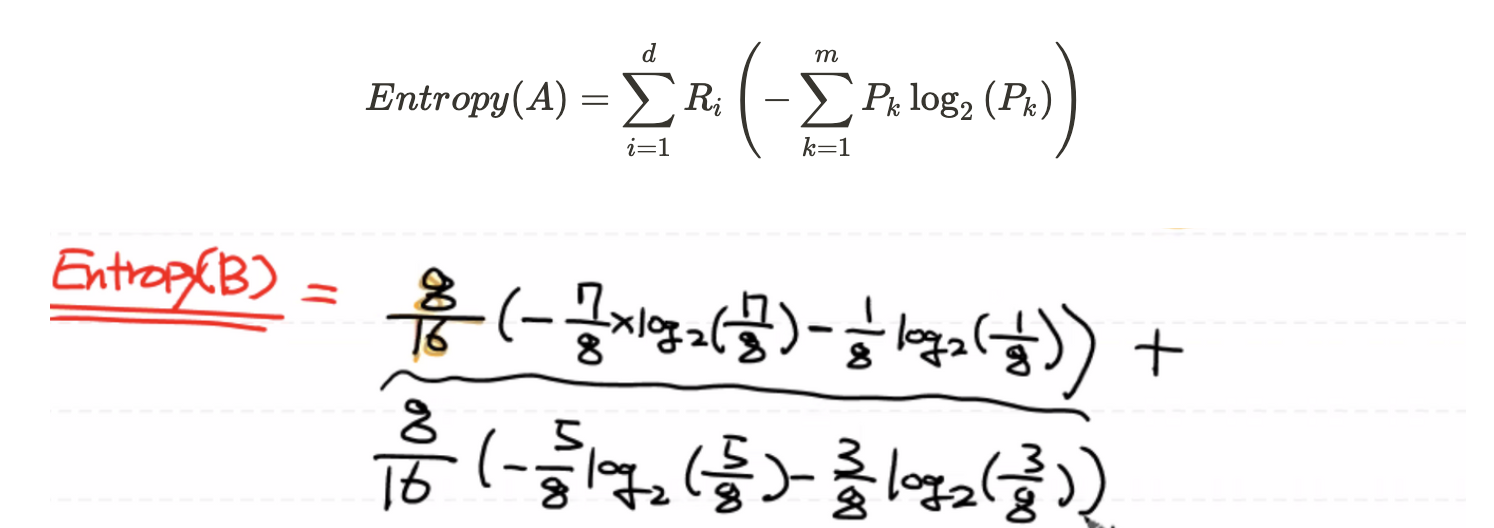 Entropy(A) = \sum_{i=1}^{d} R_i \left( -\sum_{k=1}^{m} P_k \log_2 (P_k) \right)
Entropy(B) = \frac{8}{16} (-\frac{7}{8} × log_2(\frac{7}{8}) - \frac{1}{8} log_2(\frac{1}{8})) +
\frac{8}{16} (-\frac{5}{8} log_2 (\frac{5}{8}) - \frac{3}{8} log_2(\frac{3}{8}))